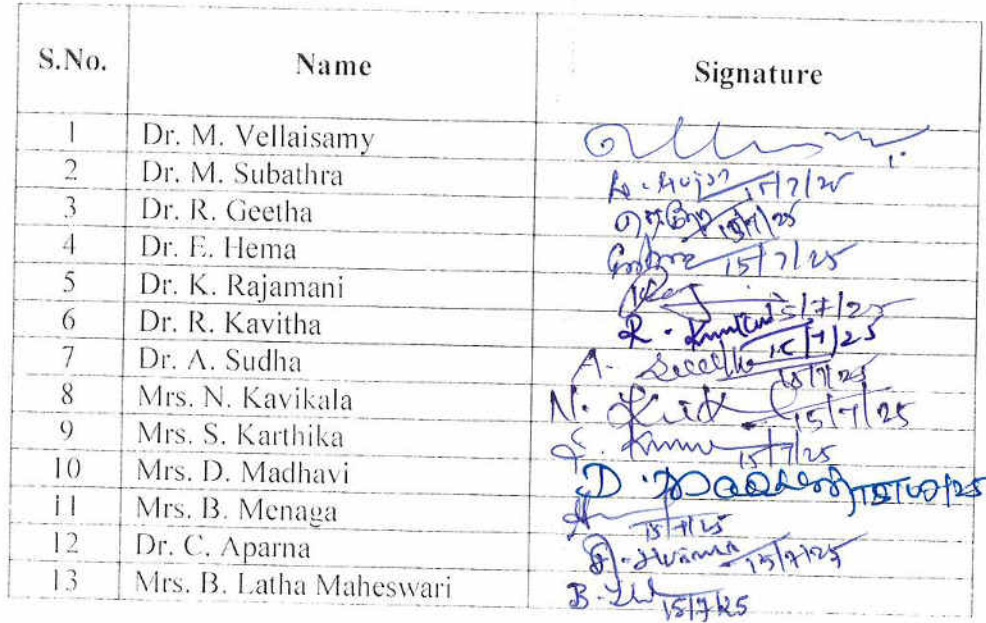 S.No. Name Signature
1 Dr. M. Vellaisamy
2 Dr. M. Subathra 15/7/25
3 Dr. R. Geetha 15/7/25
4 Dr. E. Hema 15/7/25
5 Dr. K. Rajamani 15/7/25
6 Dr. R. Kavitha R. 15/7/25
7 Dr. A. Sudha A. 15/7/25
8 Mrs. N. Kavikala N. 15/7/25
9 Mrs. S. Karthika S. 15/7/25
10 Mrs. D. Madhavi D.
11 Mrs. B. Menaga 15/7/25
12 Dr. C. Aparna 15/7/25
13 Mrs. B. Latha Maheswari B. 15/7/25